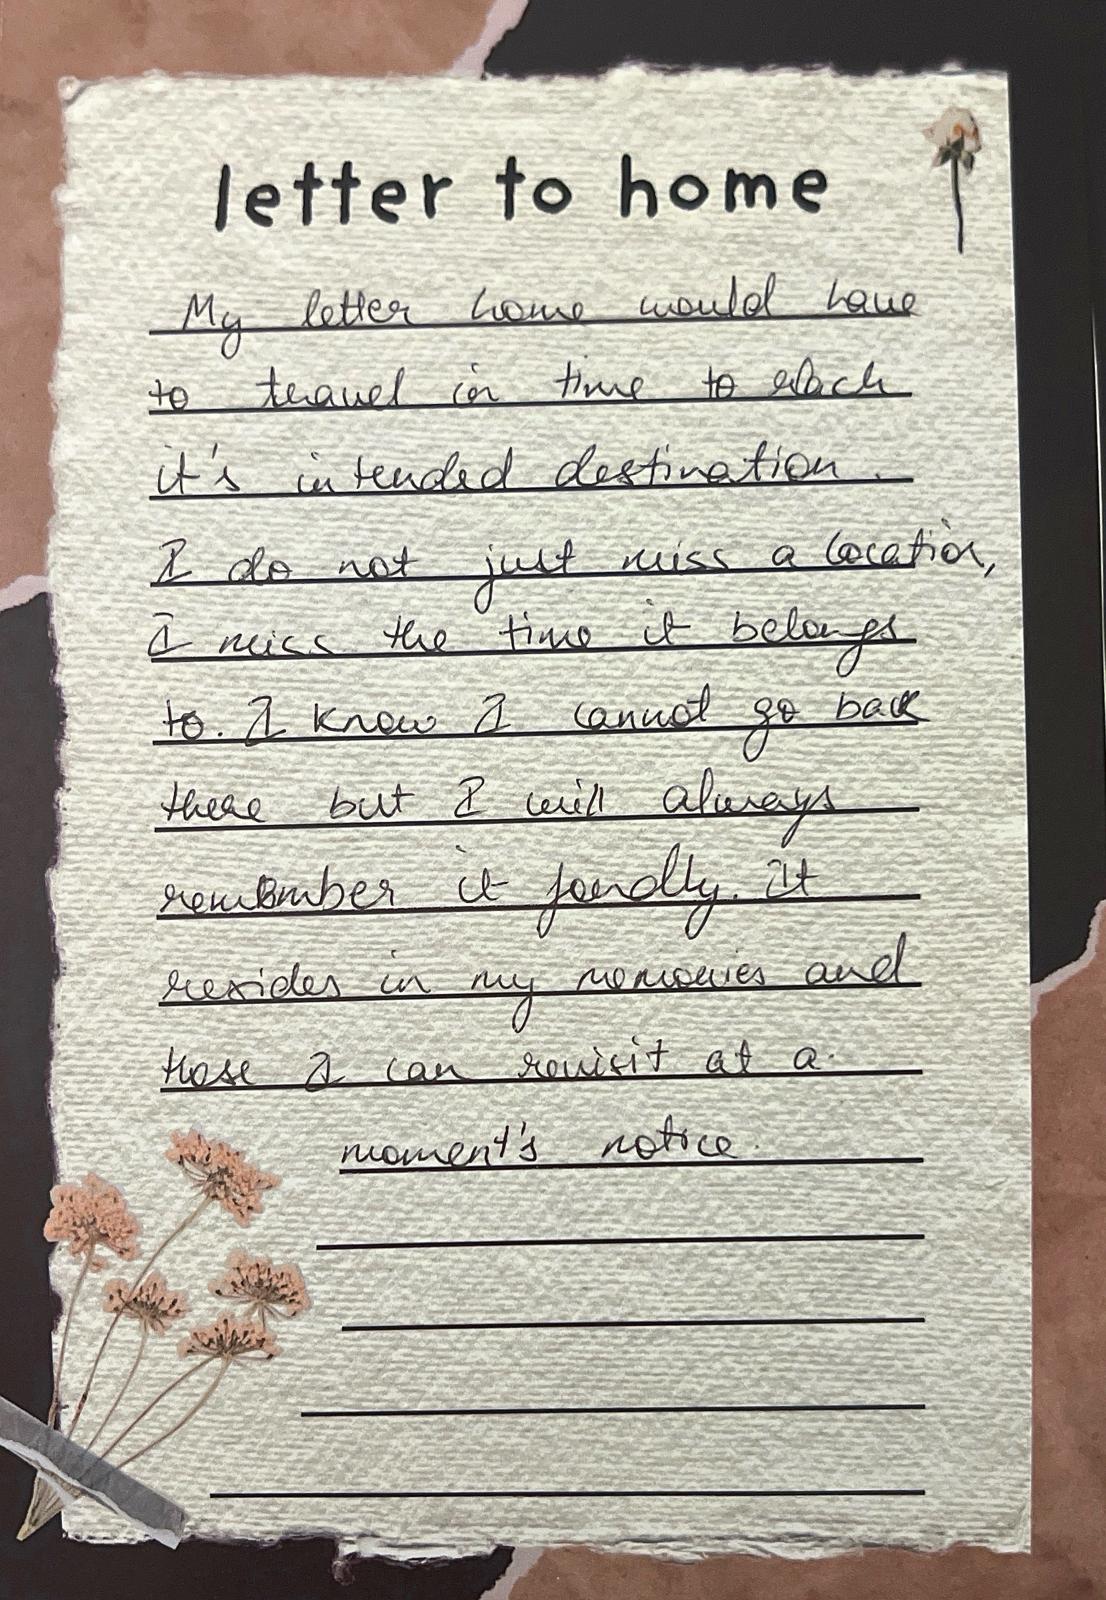 letter to home
My letter home would have
to travel in time to reach
it's intended destination.
I do not just miss a location,
I miss the time it belongs
to. I know I cannot go back
there but I will always
remember it fondly. It
resides in my memories and
those I can revisit at a
moment's notice.